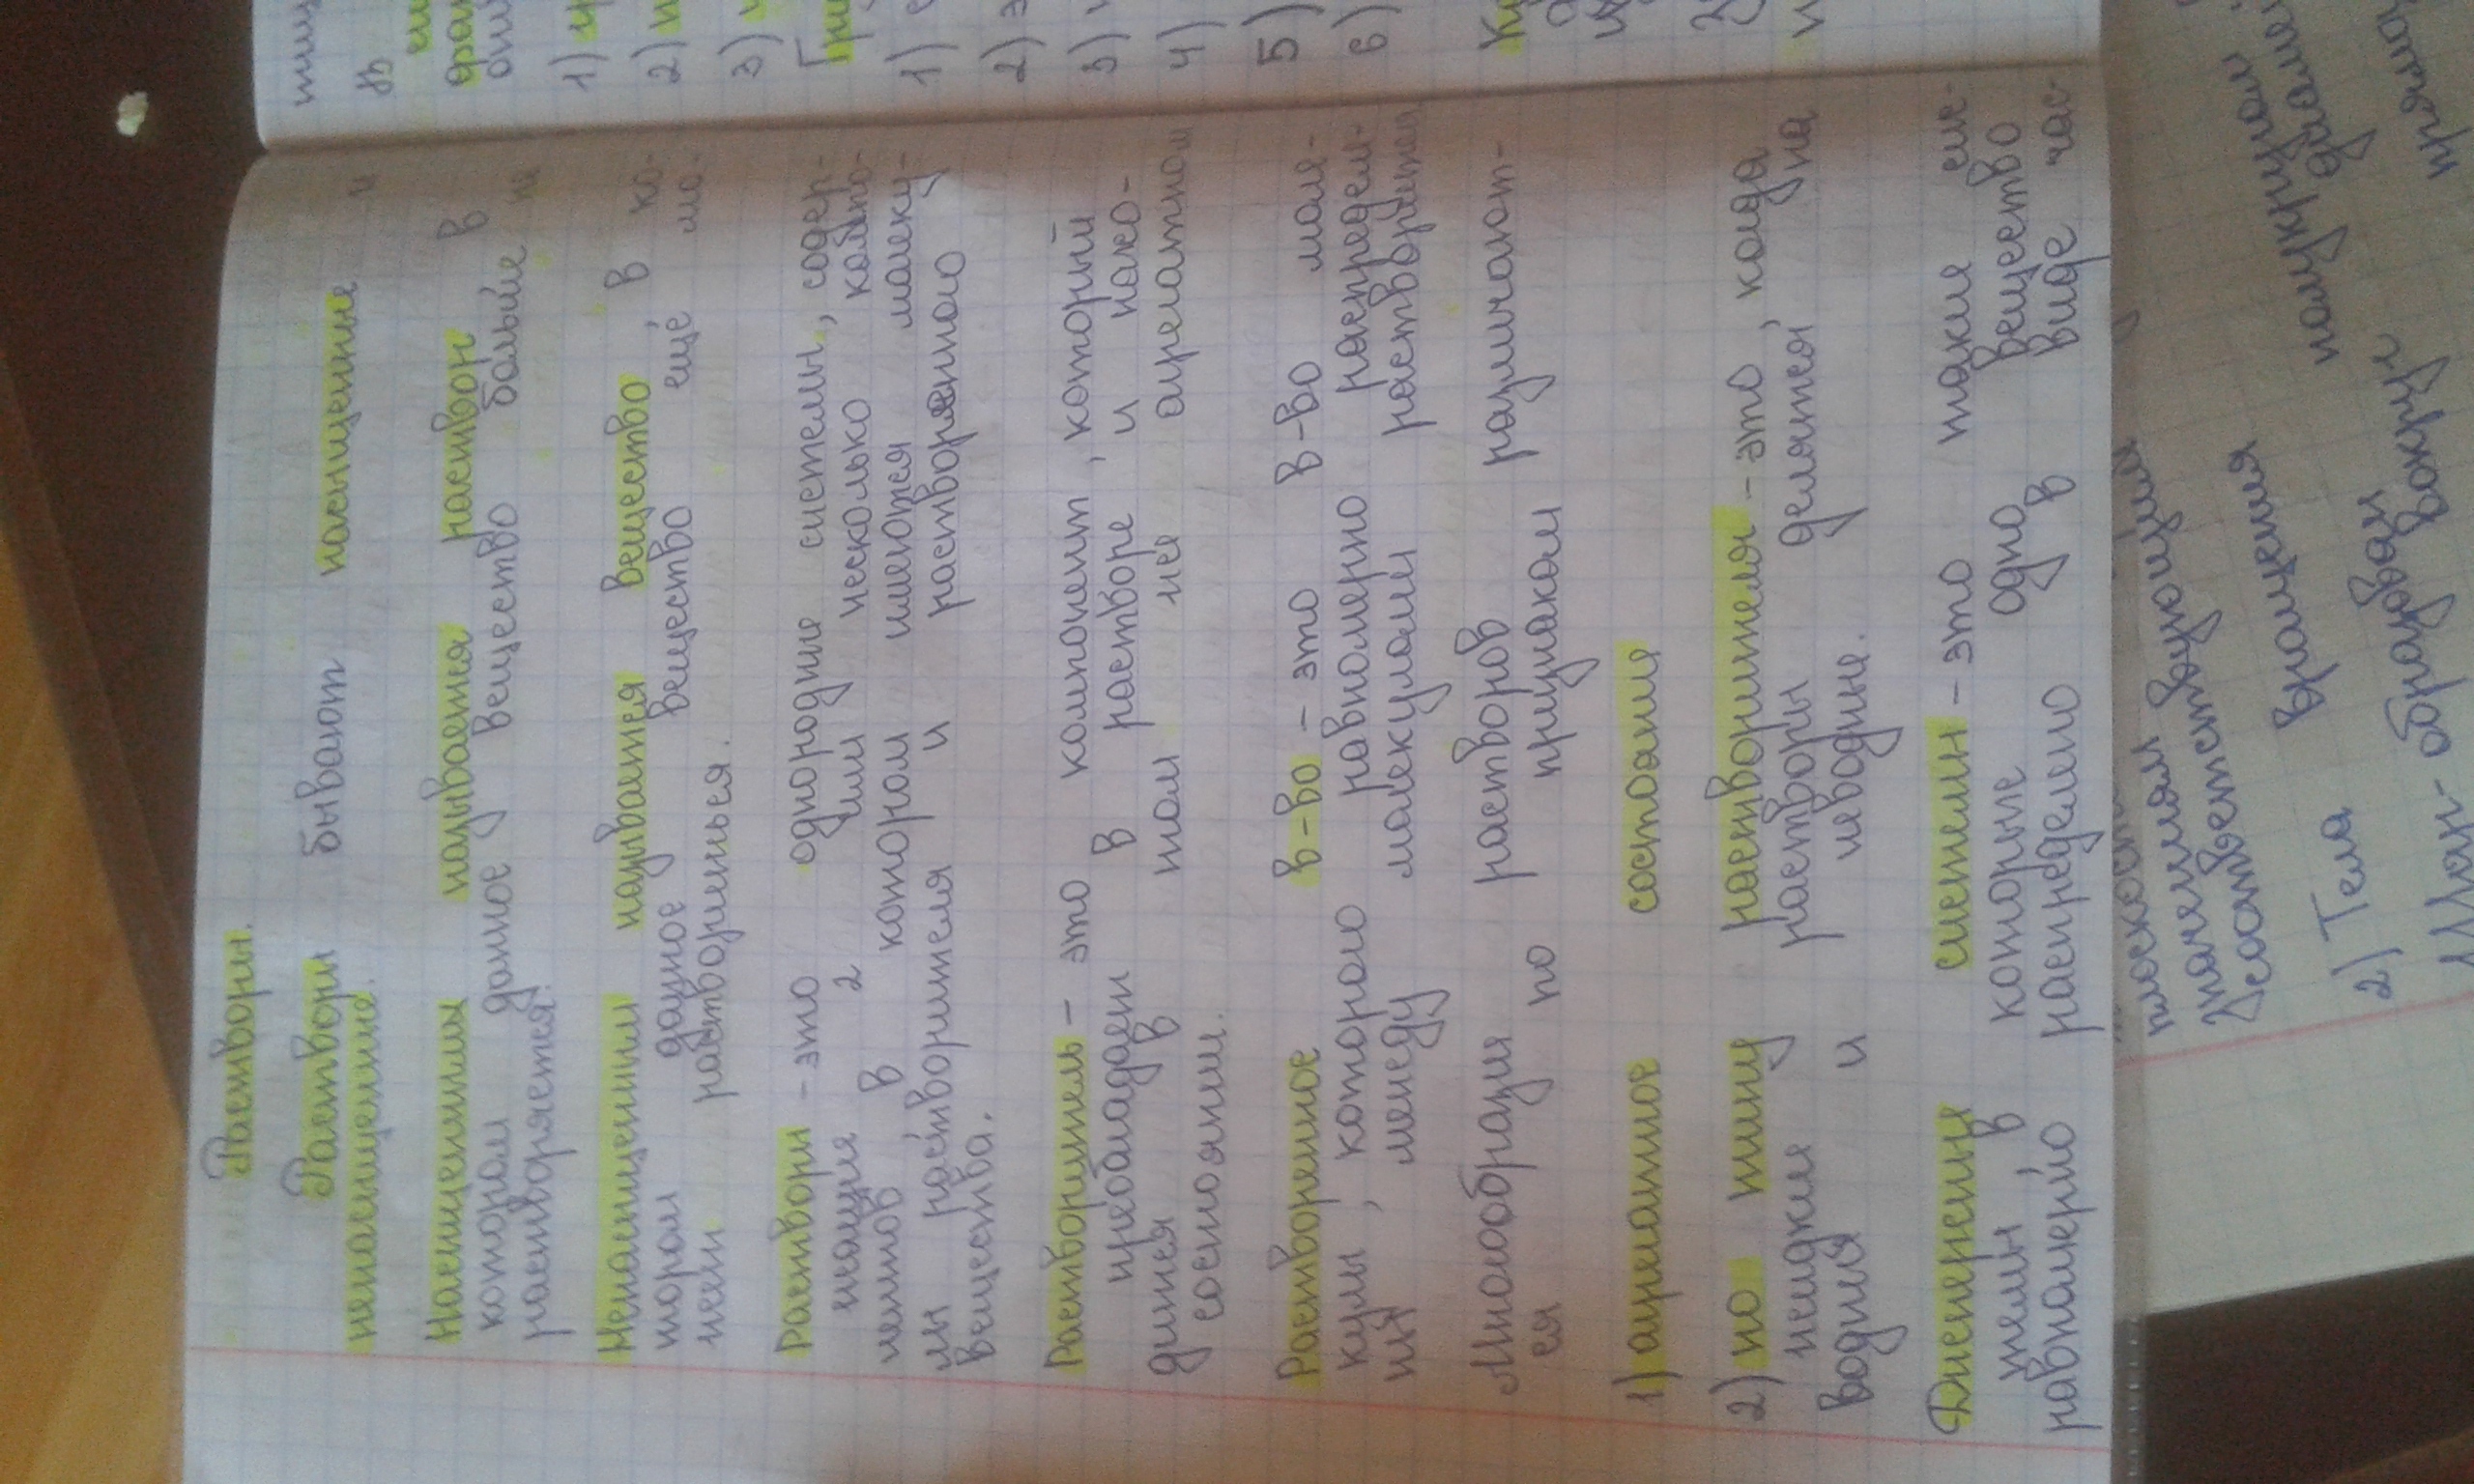 Растворы.
Растворы бывают насыщенные и
ненасыщенные.
Насыщенным называется раствор в
котором данное вещество больше не
растворяется.
Ненасыщенным называется вещество в ко-
тором данное вещество ещё мо-
жет растворится.
Растворы - это однородные системы, содер-
жащие 2 или несколько компо-
нентов в котором имеются молеку-
лы растворителя и растворенного
вещества.
Растворитель - это компонент, который
преобладает в растворе и нахо-
дится в том же агрегатном
состоянии.
Растворенное в-во - это в-во моле-
кулы, которого равномерно распредел-
ны между молекулами растворителя
Многообразия растворов различают-
ся по признакам
1) агрегатное состояние
2) по типу растворителя - это, когда
жидкие растворы делятся, на
водные и неводные.
Дисперсные системы - это такие сис-
темы, в которые одно вещество
равномерно распределено в виде час-
1)
2)
3)
1)
2)
3)
4)
5)
6)
значения функции
Соответственно
2) Тела вращения
образован вокруг